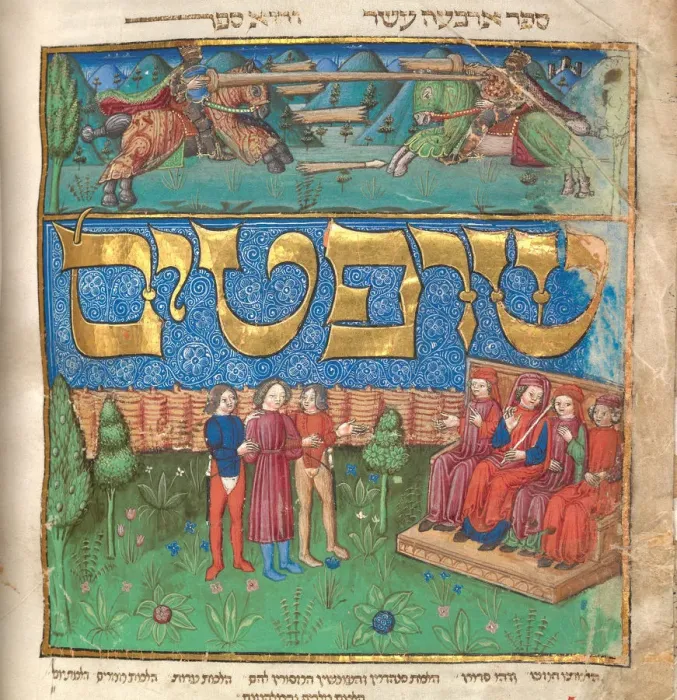 ספר ארבעה עשר והוא ספר
שופטים
הלכותיו חמש וזהו סדורן הלכות סנהדרין והעונשין המסורין להם הלכות עדות הלכות ממרים הלכות אבל
הלכות מלכים